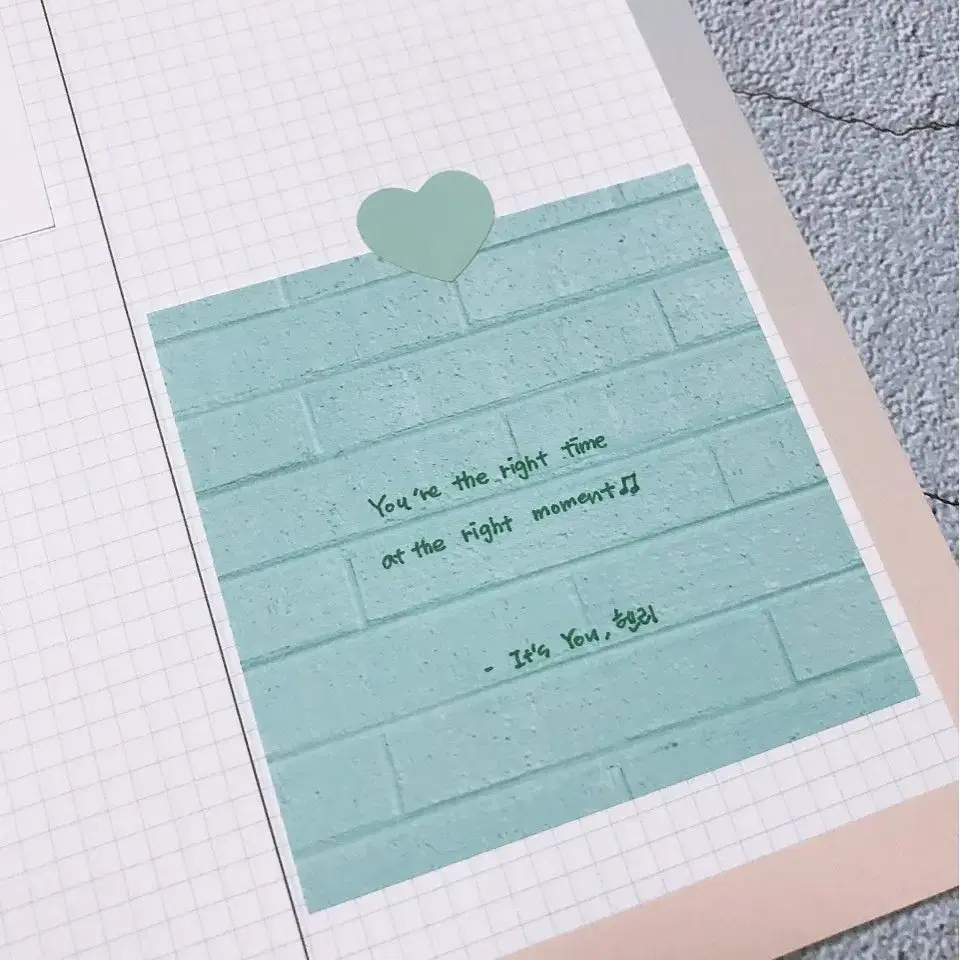 You're the right time
at the right moment♫
- It's You, 헨리